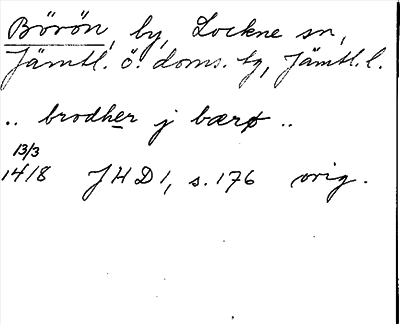 Börön, by, Lockne sn,
Jämtl. ö. doms. tg, Jämtl. l.
.. brodher j bærø ..
13/3
1418 JHD 1, s. 176 orig.